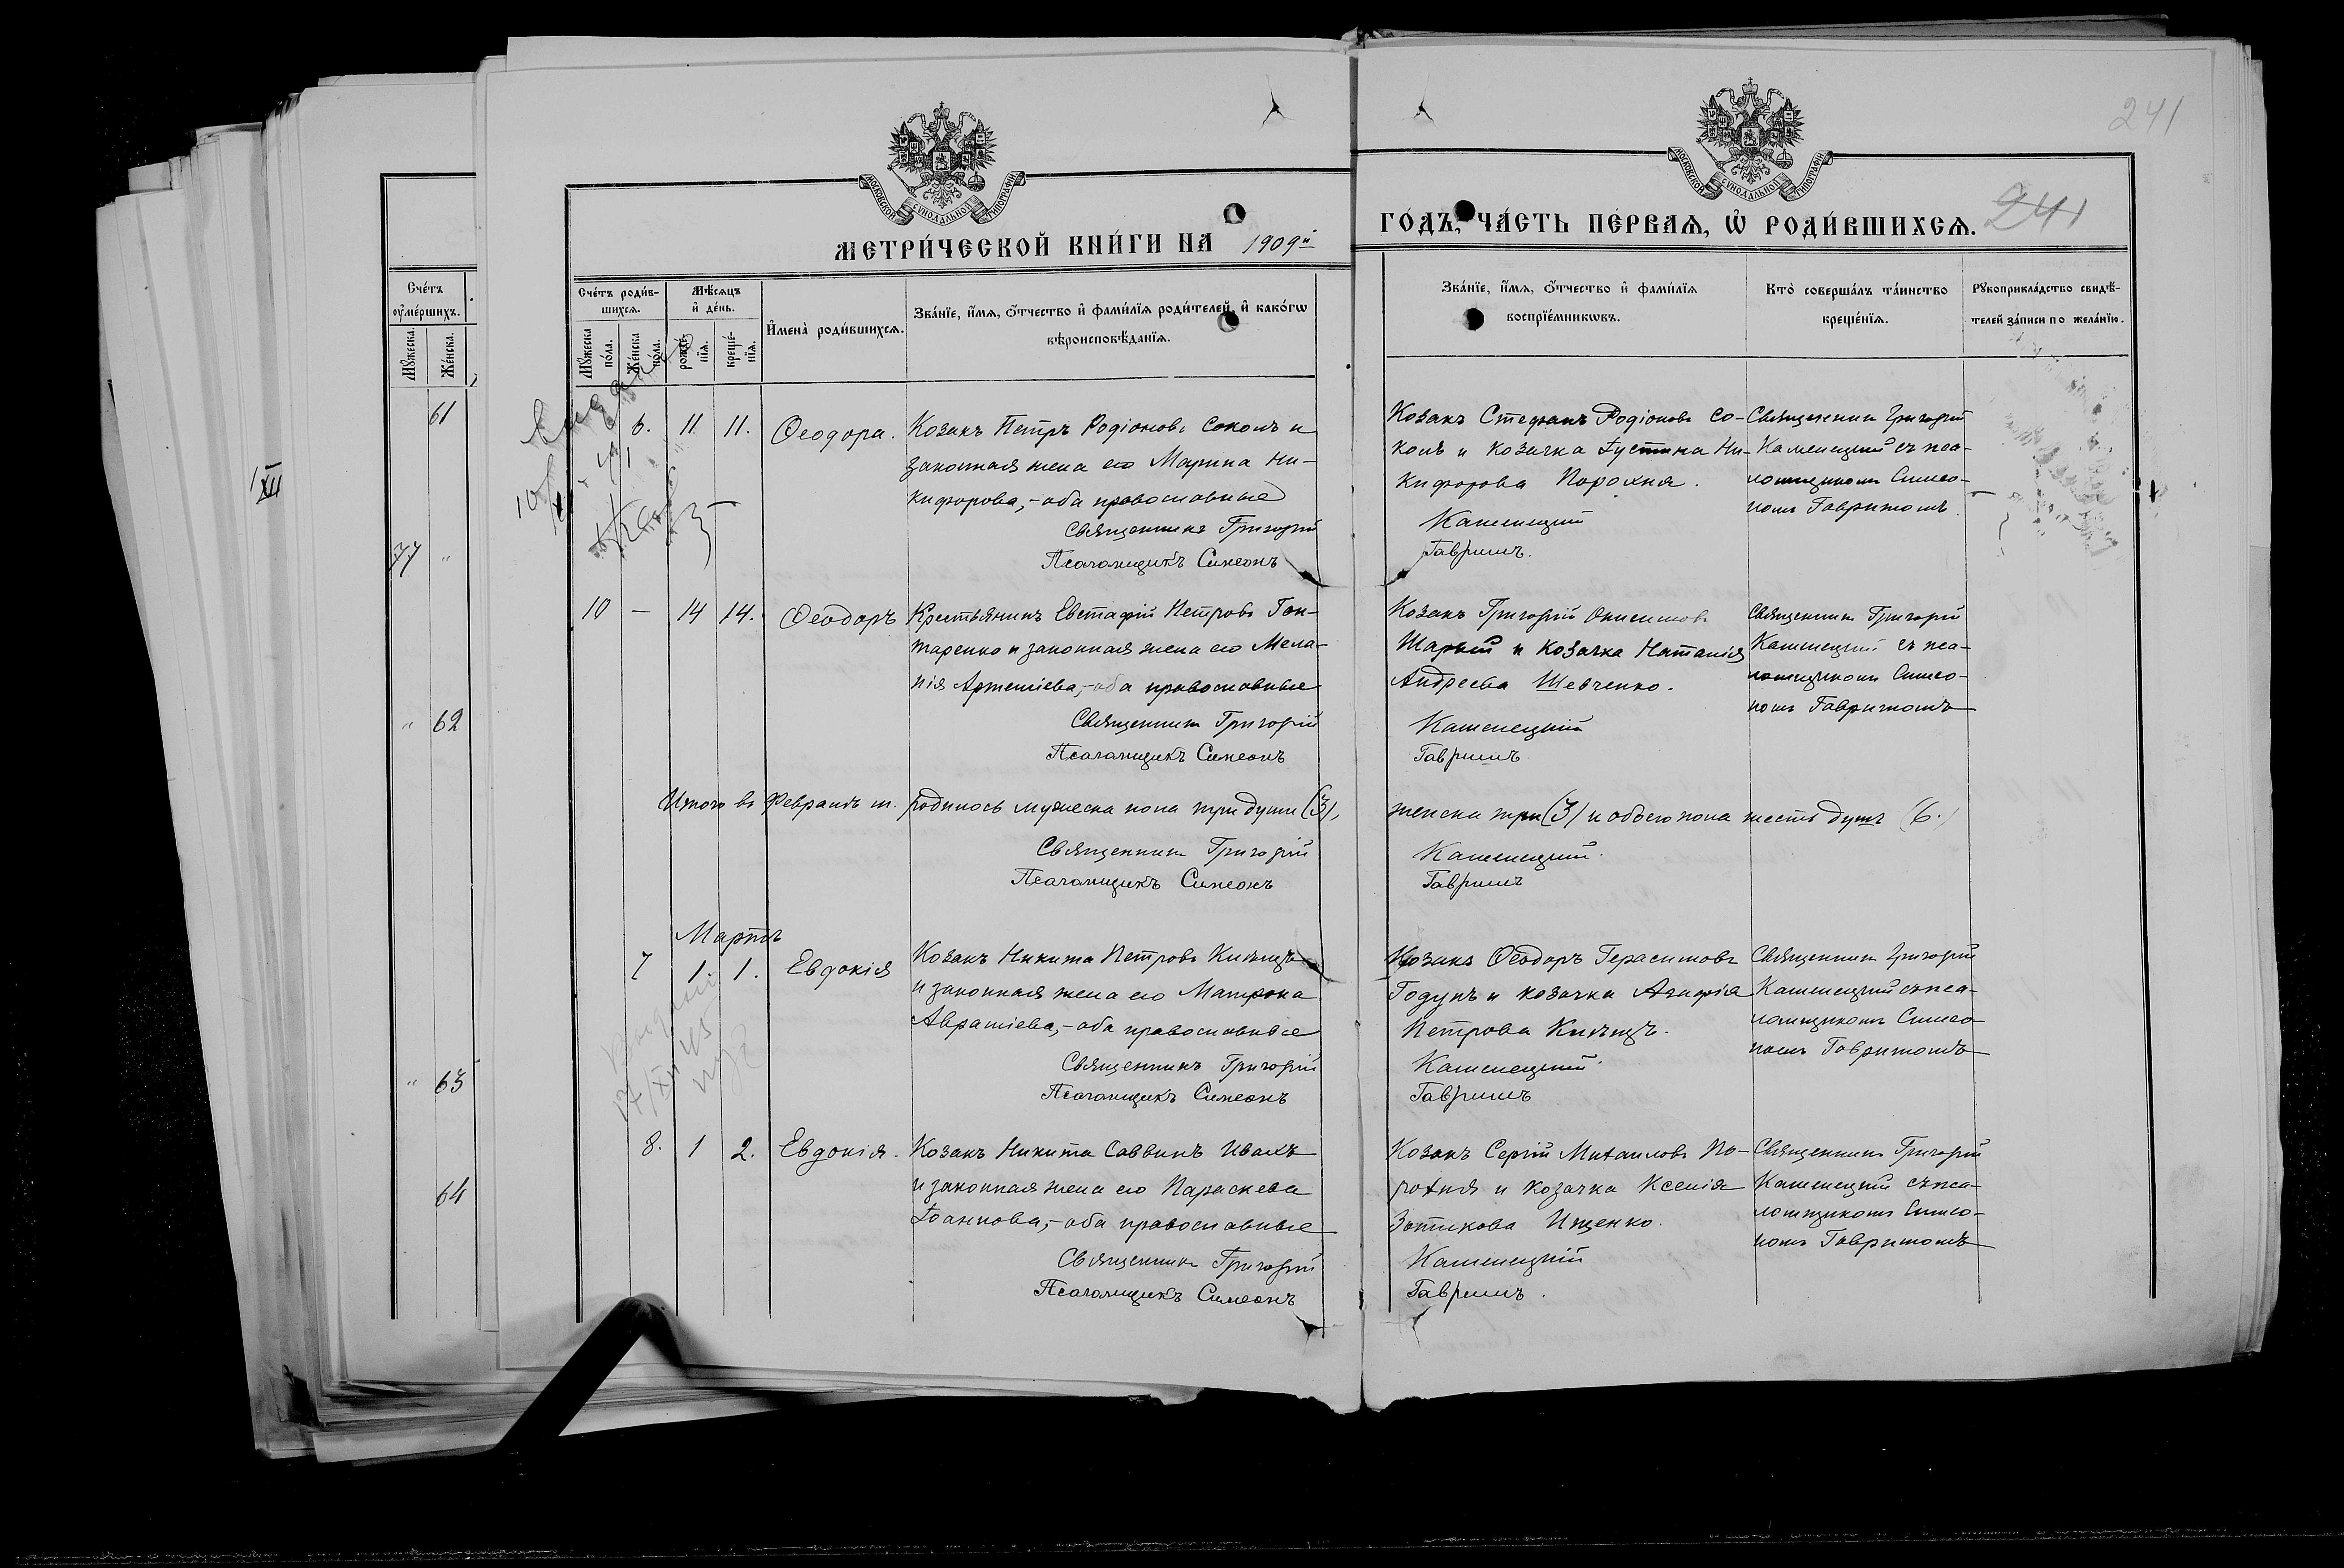 241
241
МОСКОВСКОЙ СѴНОДАЛЬНОЙ ТИПОГРАФІИ
МОСКОВСКОЙ СѴНОДАЛЬНОЙ ТИПОГРАФІИ
МЕТРИ́ЧЕСКОЙ КНИ́ГИ НА 1909й
ГО́ДЪ, ЧА́СТЬ ПЕ́РВАѦ, Ѡ҆ РОДИ́ВШИХСѦ.
Сче́тъ
оу҆ме́ршихъ.
Мꙋ́жеска.
Же́нска.
Сче́тъ роди́в-
шихсѧ.
Мꙋ́жеска по́ла.
Же́нска по́ла.
Мѣ́сѧцъ
и҆ де́нь.
рожде́-нїѧ.
креще́-нїѧ.
И҆мена̀ роди́вшихсѧ.
Зва́нїе, и҆́мѧ, ѻ҆́тчество и҆ фами́лїѧ роди́телей, и҆ како́гѡ
вѣроисповѣ́данїѧ.
Зва́нїе, и҆́мѧ, ѻ҆́тчество и҆ фами́лїѧ
воспрїе́мникѡвъ.
Кто̀ соверша́лъ та́инство
креще́нїѧ.
Рꙋкоприкла́дство свидѣ́-
телей за́писи по жела́нїю.
61
77 "
" 62
" 63
64
XII
6. 11 11. Ѳеодора.
Козакъ Петръ Родіоновъ Соколъ и
законная жена его Марина Ни-
кифорова,- оба православные
Священникъ Григорій
Псаломщикъ Симеонъ
Козакъ Стефанъ Родіоновъ Со-
колъ и козачка Іустина Ни-
кифорова Порохня.
Каменецкій
Гавришъ.
Священникъ Григорій
Каменецкій съ пса-
ломщикомъ Симео-
номъ Гавришомъ.
10 — 14 14. Ѳеодоръ
Крестьянинъ Евстафій Петровъ Гон-
таренко и законная жена его Мела-
нія Артеміева,- оба православные
Священникъ Григорій
Псаломщикъ Симеонъ
Козакъ Григорій Онисимовъ
Шарый и козачка Наталія
Андреева Шевченко.
Каменецкій
Гавришъ
Священникъ Григорій
Каменецкій съ пса-
ломщикомъ Симео-
номъ Гавришомъ
Итого въ Февралѣ м. родилось мужеска пола три души (3),
женска три (3) и обоего пола шесть душъ (6.)
Священникъ Григорій
Псаломщикъ Симеонъ
Каменецкій.
Гавришъ
Мартъ
7 1. 1. Евдокія
Козакъ Никита Петровъ
и законная жена его Матрона
Авраміева,- оба православные
Священникъ Григорій
Псаломщикъ Симеонъ
Козакъ Ѳеодоръ Герасимовъ
Годунъ и козачка Агафія
Петрова
Каменецкій.
Гавришъ
Священникъ Григорій
Каменецкій съ пса-
ломщикомъ Симео-
номъ Гавришомъ
8. 1 2. Евдокія.
Козакъ Никита Саввинъ Ивахъ
и законная жена его Параскева
Іоаннова,- оба православные
Священникъ Григорій
Псаломщикъ Симеонъ
Козакъ Сергій Михаиловъ По-
рохня и козачка Ксенія
Зотикова Ищенко.
Каменецкій
Гавришъ.
Священникъ Григорій
Каменецкій съ пса-
ломщикомъ Симео-
номъ Гавришомъ